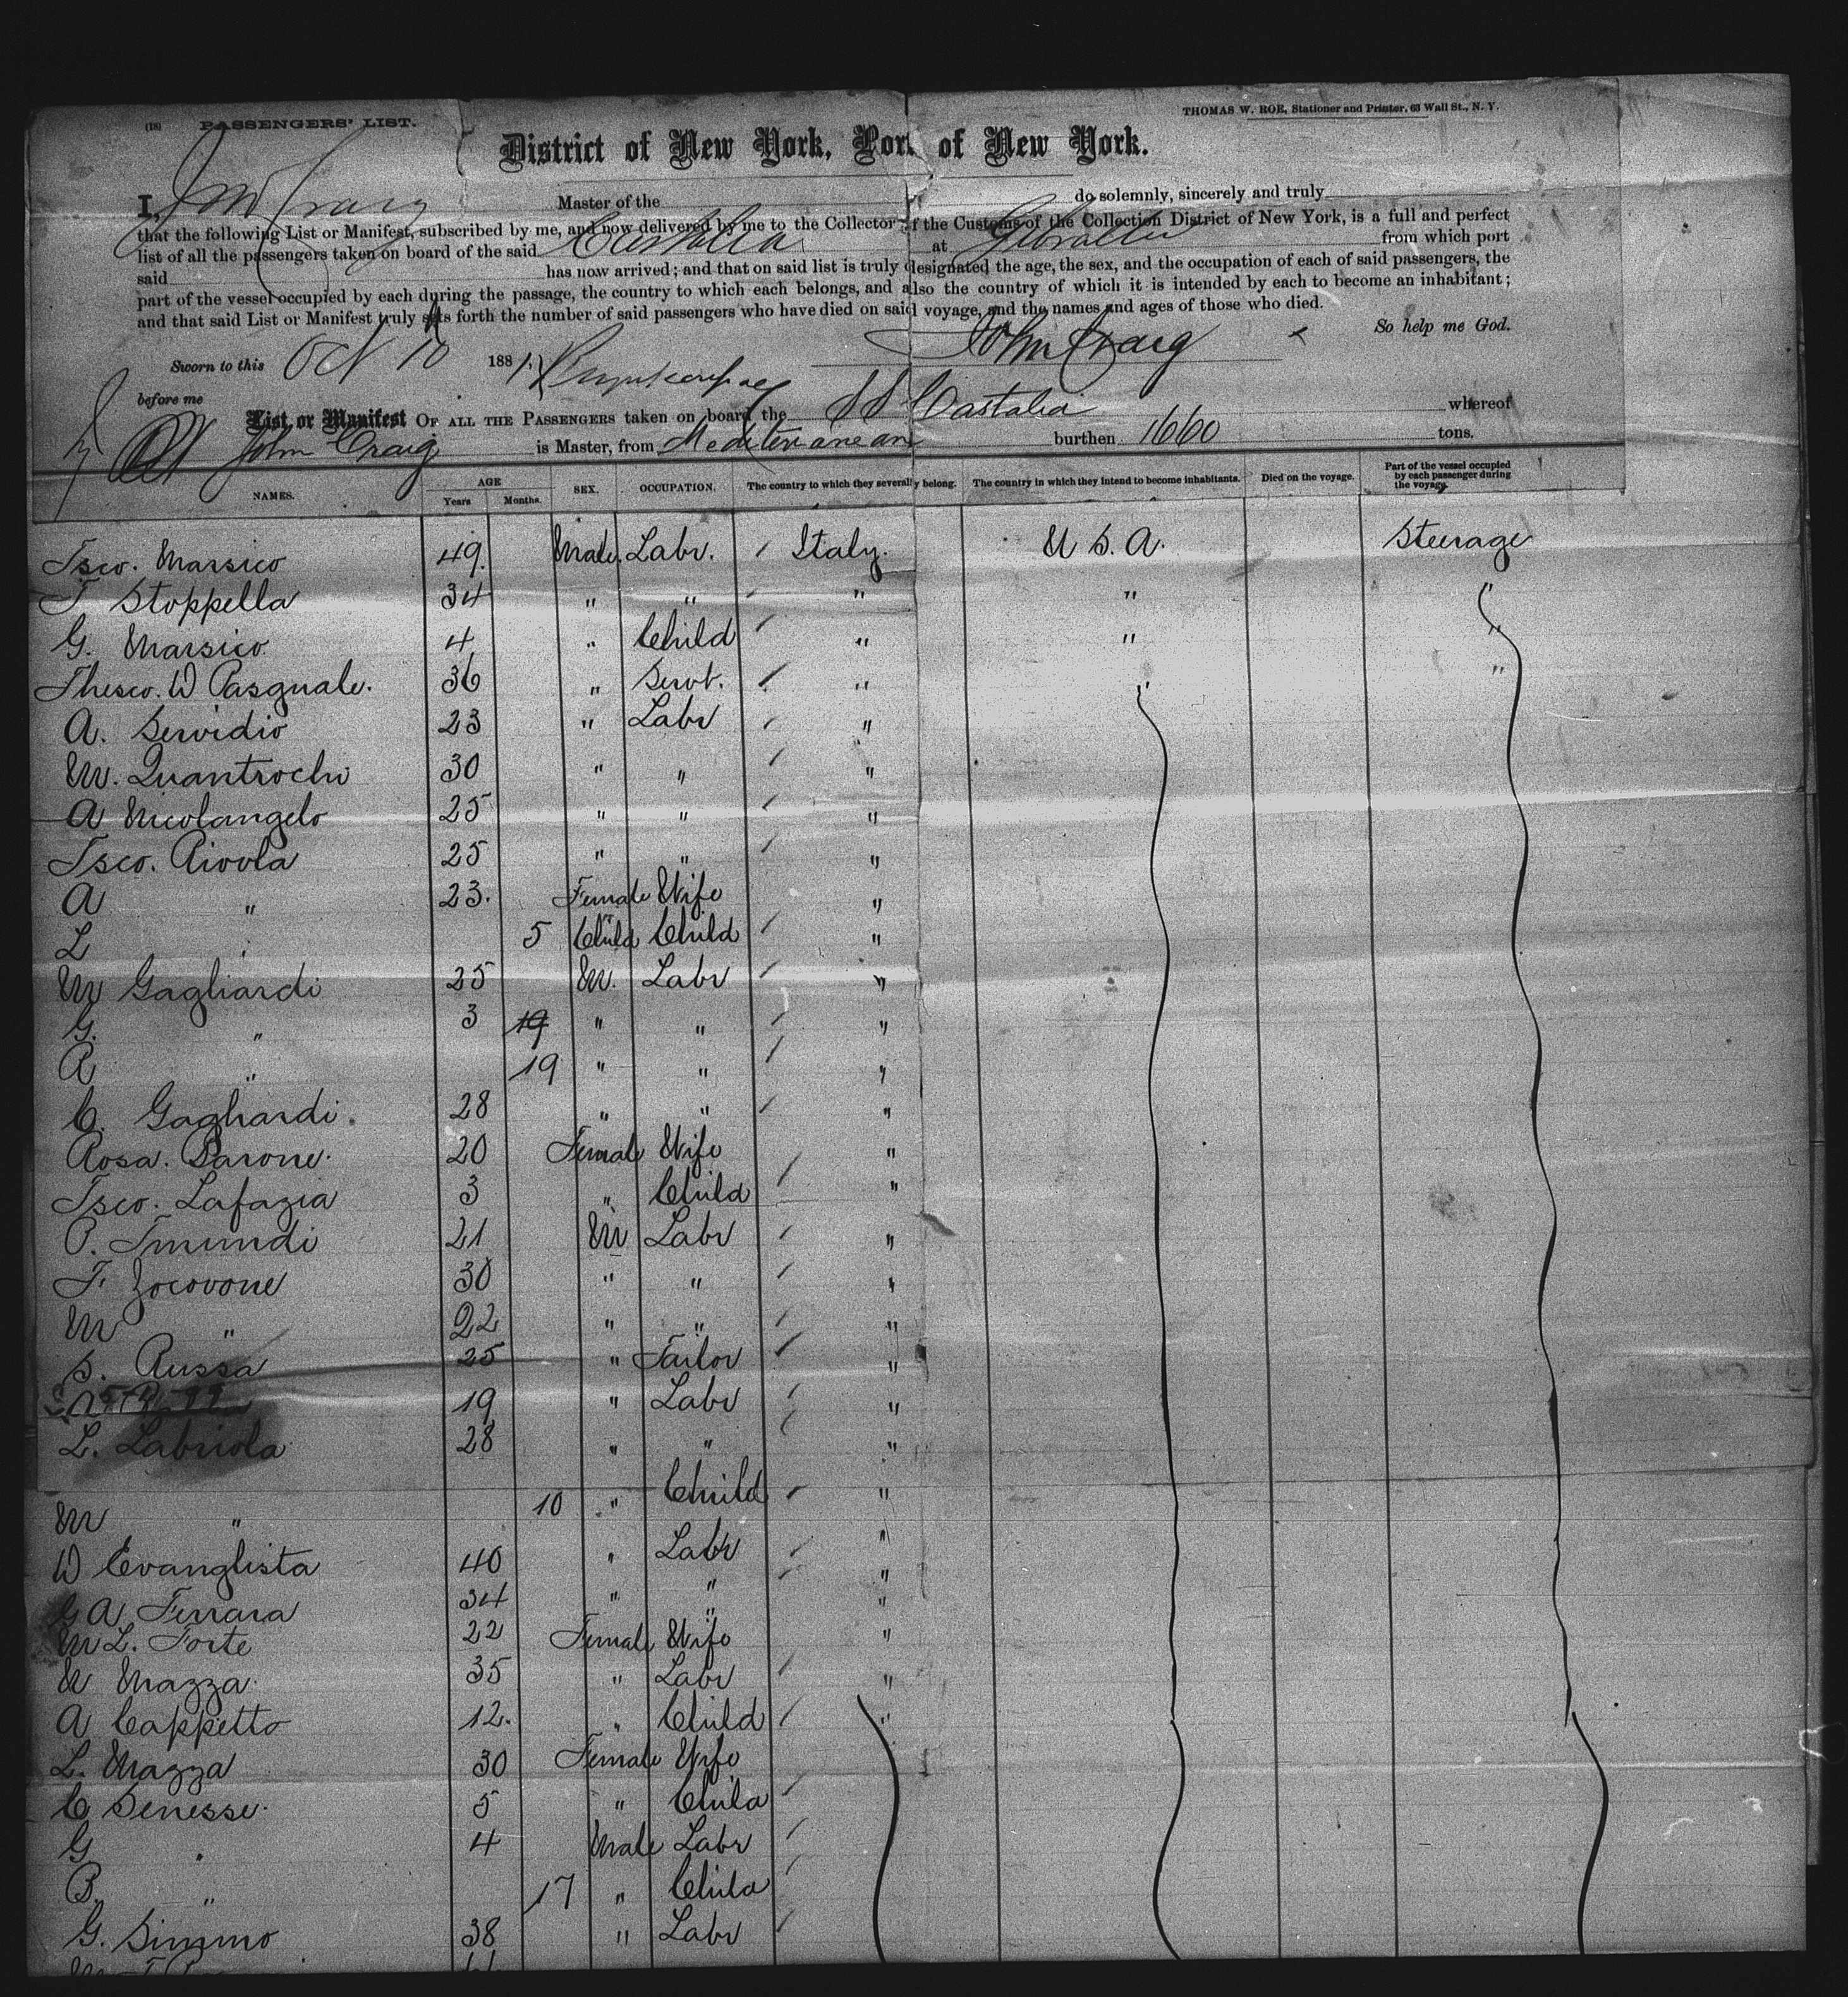 (18) PASSENGERS' LIST.
THOMAS W. ROE, Stationer and Printer, 63 Wall St., N. Y.
District of New York, Port of New York.
I, Jno Craig Master of the do solemnly, sincerely and truly
that the following List or Manifest, subscribed by me, and now delivered by me to the Collector of the Customs of the Collection District of New York, is a full and perfect
list of all the passengers taken on board of the said Castalia at Gibraltar from which port
said has now arrived; and that on said list is truly designated the age, the sex, and the occupation of each of said passengers, the
part of the vessel occupied by each during the passage, the country to which each belongs, and also the country of which it is intended by each to become an inhabitant;
and that said List or Manifest truly sets forth the number of said passengers who have died on said voyage, and the names and ages of those who died.
So help me God.
Sworn to this Oct 10 188 John Craig
before me
List or Manifest OF ALL THE PASSENGERS taken on board the SS Castalia whereof
John Craig is Master, from Mediterranean burthen 1660 tons.
NAMES. AGE Years Months. SEX. OCCUPATION. The country to which they severally belong. The country in which they intend to become inhabitants. Died on the voyage. Part of the vessel occupied by each passenger during the voyage.
Fsco. Marsico 49. Male. Labr. Italy. U S. A. Steerage
F Stoppella 34 " " " " "
G. Marsico 4 " Child " " "
Thesco. D Pasquale. 36 " Servt. " " "
A. Servidio 23 " Labr "
M. Quantrochi 30 " " "
A Nicolangelo 25 " " "
Fsco. Aivola 25 " " "
A " 23. Female Wife "
L " 5 Child Child "
M Gagliardi 25 M. Labr "
G. " 3 19 " " "
A " 19 " " "
C. Gagliardi. 28 " " "
Rosa. Barone. 20 Female Wife "
Fsco. Lafazia 3 " Child "
P. Imundi 21 M Labr "
F. Zocovone 30 " " "
M " 22 " " "
S. Russa 25 " Tailor "
19 " Labr "
L. Labriola 28 " " "
M " 10 " Child "
D Evanglista 40 " Labr "
G A Ferrara 34 " " "
M L. Forte 22 Female Wife "
N Mazza. 35 " Labr "
A Cappetto 12. " Child "
L. Mazza 30 Female Wife
C Senesse. 5 " Child
G " 4 Male Labr
B. " 17 " Child
G. Simmo 38 " Labr